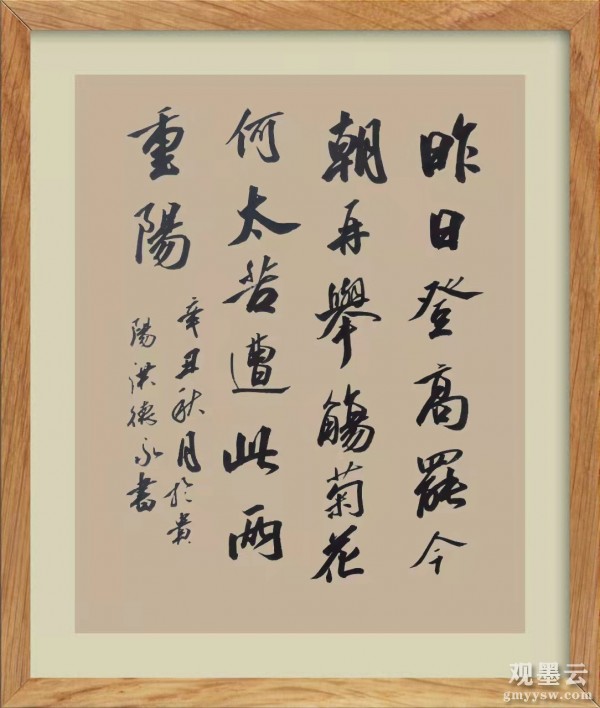 昨日登高罷今
朝再舉觴菊花
何太苦遭此兩
重陽
辛丑秋月於貴
陽洪德永書
观墨云
gmyysw.com